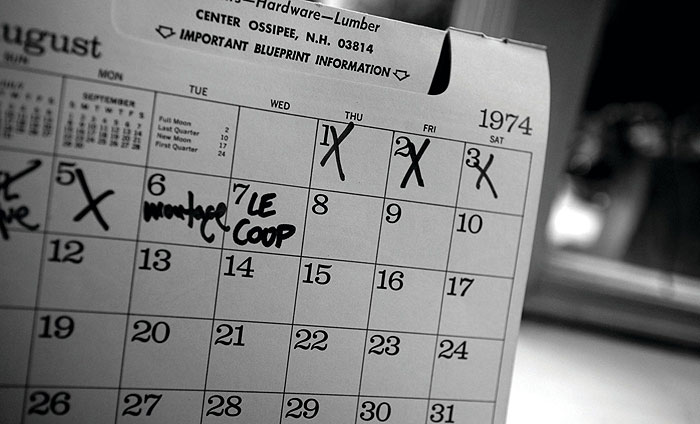 Hardware—Lumber
CENTER OSSIPEE, N.H. 03814
IMPORTANT BLUEPRINT INFORMATION
ugust 1974
SUN MON TUE WED THU FRI SAT
SEPTEMBER
S M T W T F S
Full Moon 2
Last Quarter 10
New Moon 17
First Quarter 24
1 X 2 X 3 X
5 X 6 montage 7 LE COOP 8 9 10
12 13 14 15 16 17
19 20 21 22 23 24
26 27 28 29 30 31